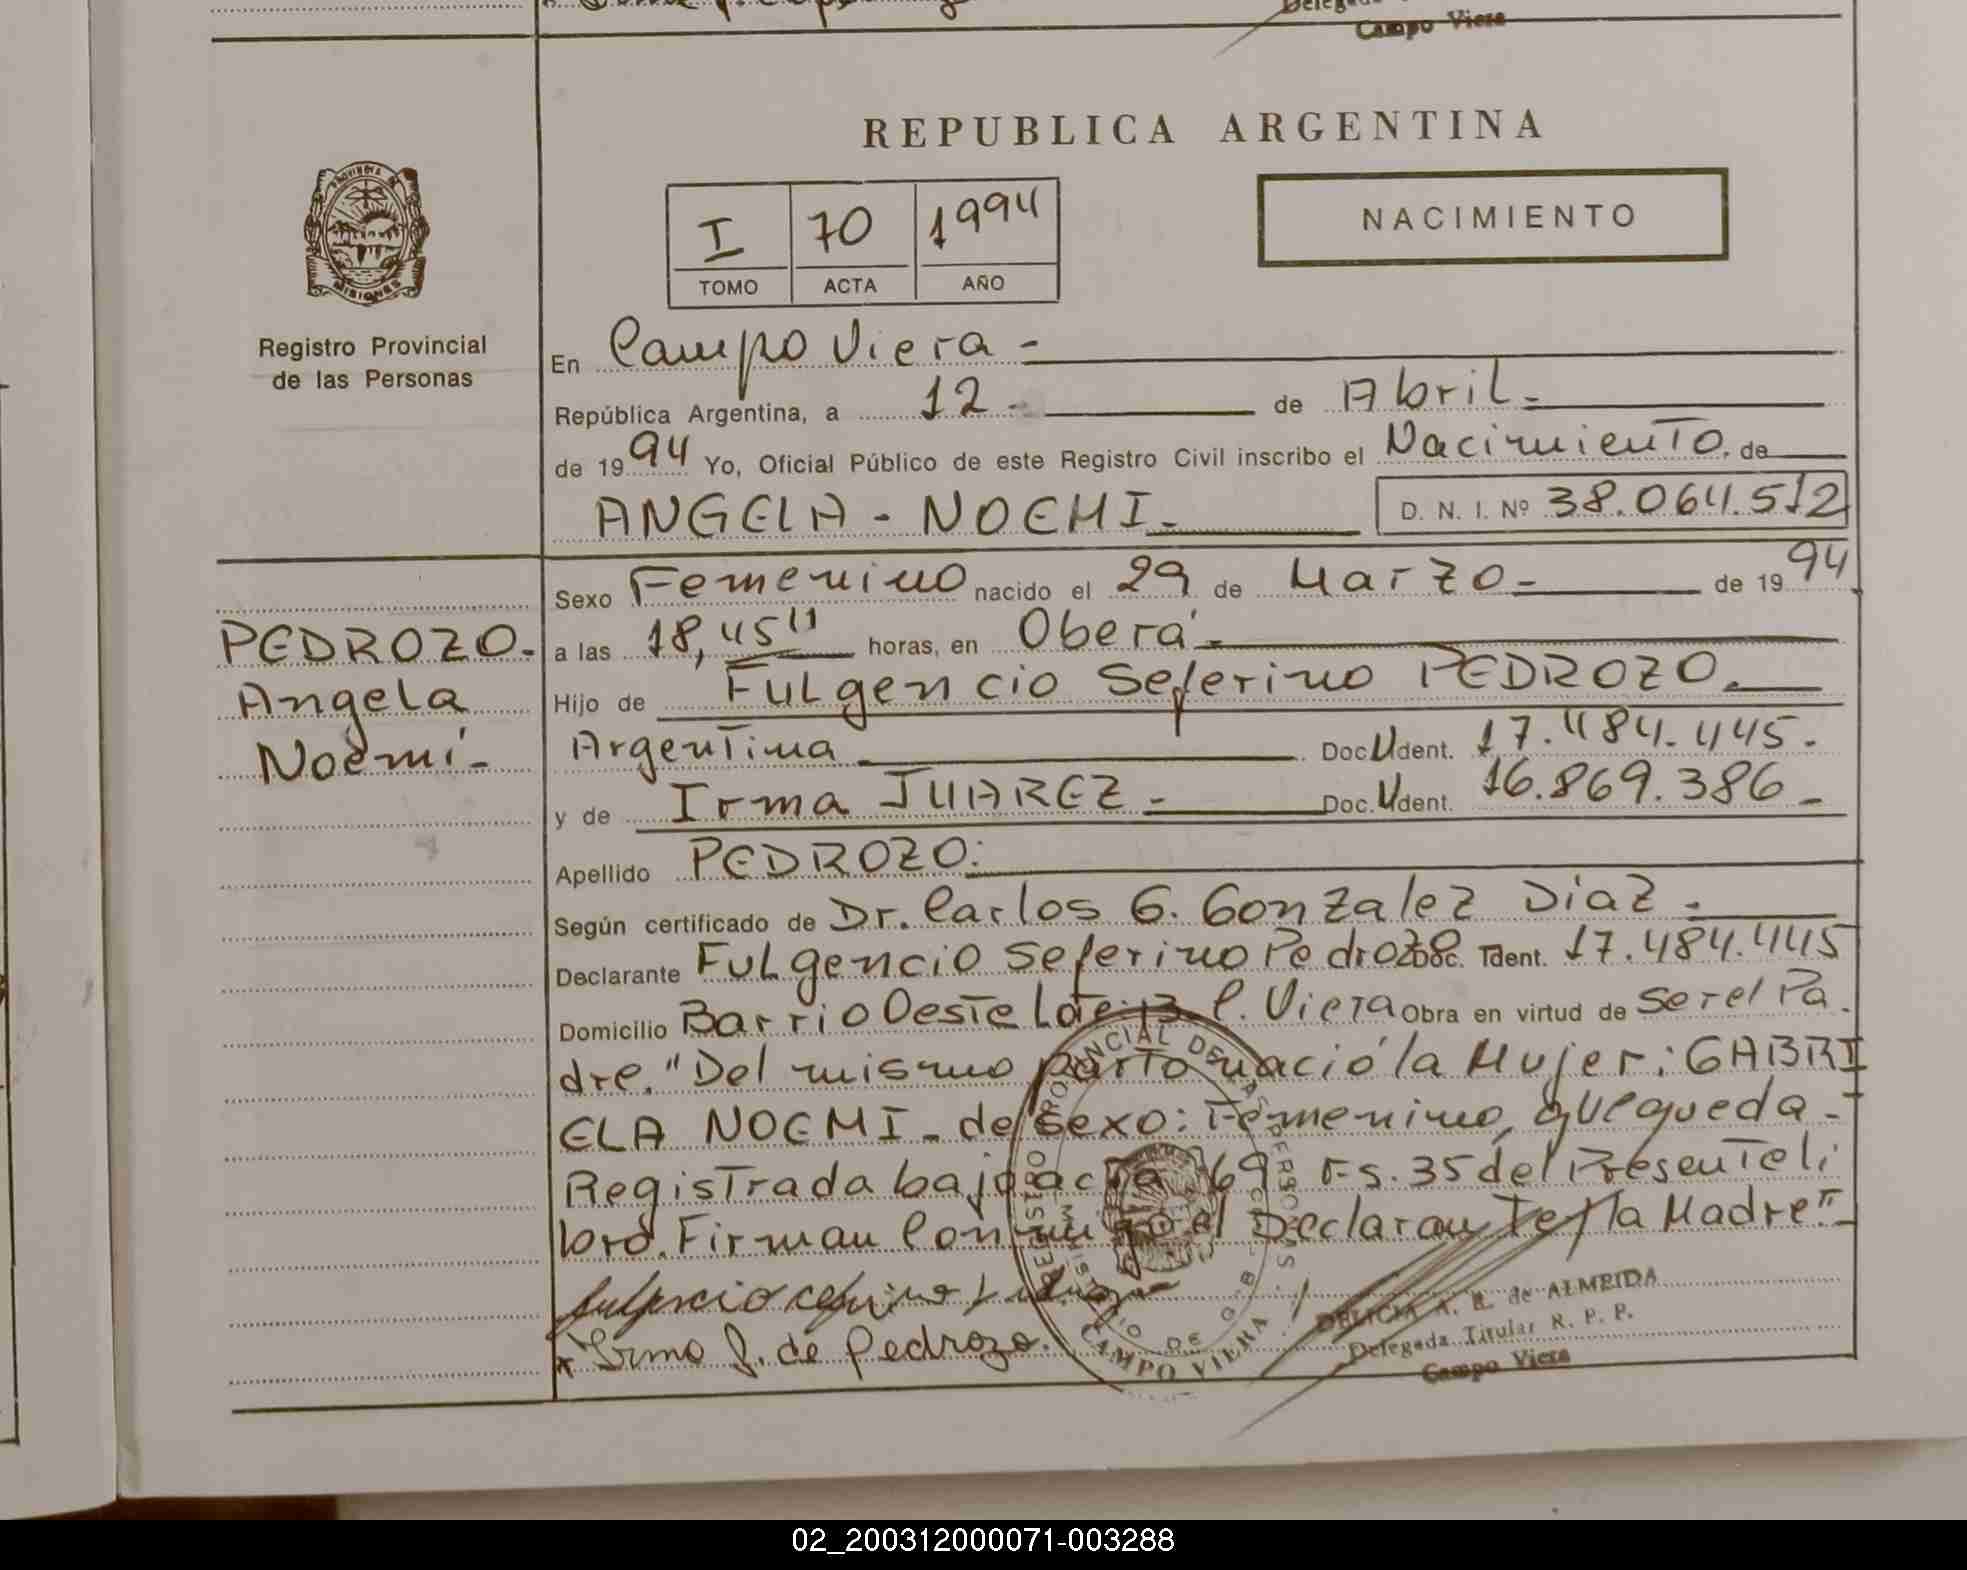 Campo Viera
REPUBLICA ARGENTINA
NACIMIENTO
I 70 1994
TOMO ACTA AÑO
PROVINCIA DE
MISIONES
Registro Provincial
de las Personas
En Campo Viera -
República Argentina, a 12 - de Abril -
de 1994 Yo, Oficial Público de este Registro Civil inscribo el Nacimiento. de
ANGELA - NOEMI - D. N. I. Nº 38.064.512
Sexo Femenino nacido el 29 de Marzo - de 1994
PEDROZO -
Angela
Noemí -
a las 18,45" horas, en Oberá -
Hijo de Fulgencio Seferino PEDROZO.
Argentina Doc. Ident. 17.484.445.
y de Irma JUAREZ - Doc. Ident. 16.869.386 -
Apellido PEDROZO:
Según certificado de Dr. Carlos G. Gonzalez Diaz -
Declarante Fulgencio Seferino Pedrozo Doc. Ident. 17.484.445
Domicilio Barrio Oeste Lote 13 C. Viera Obra en virtud de ser el Pa
dre. "Del mismo parto nació la Mujer: GABRI
ELA NOEMI - de Sexo: Femenino, que queda -
Registrada bajo acta 69 Fs. 35 del Presente li
bro. Firman Conmigo el Declarante y la Madre" -
Irma J. de Pedrozo.
DELICIA A. R. de ALMEIDA
Delegada Titular R. P. P.
Campo Viera
CAMPO VIERA
02_200312000071-003288